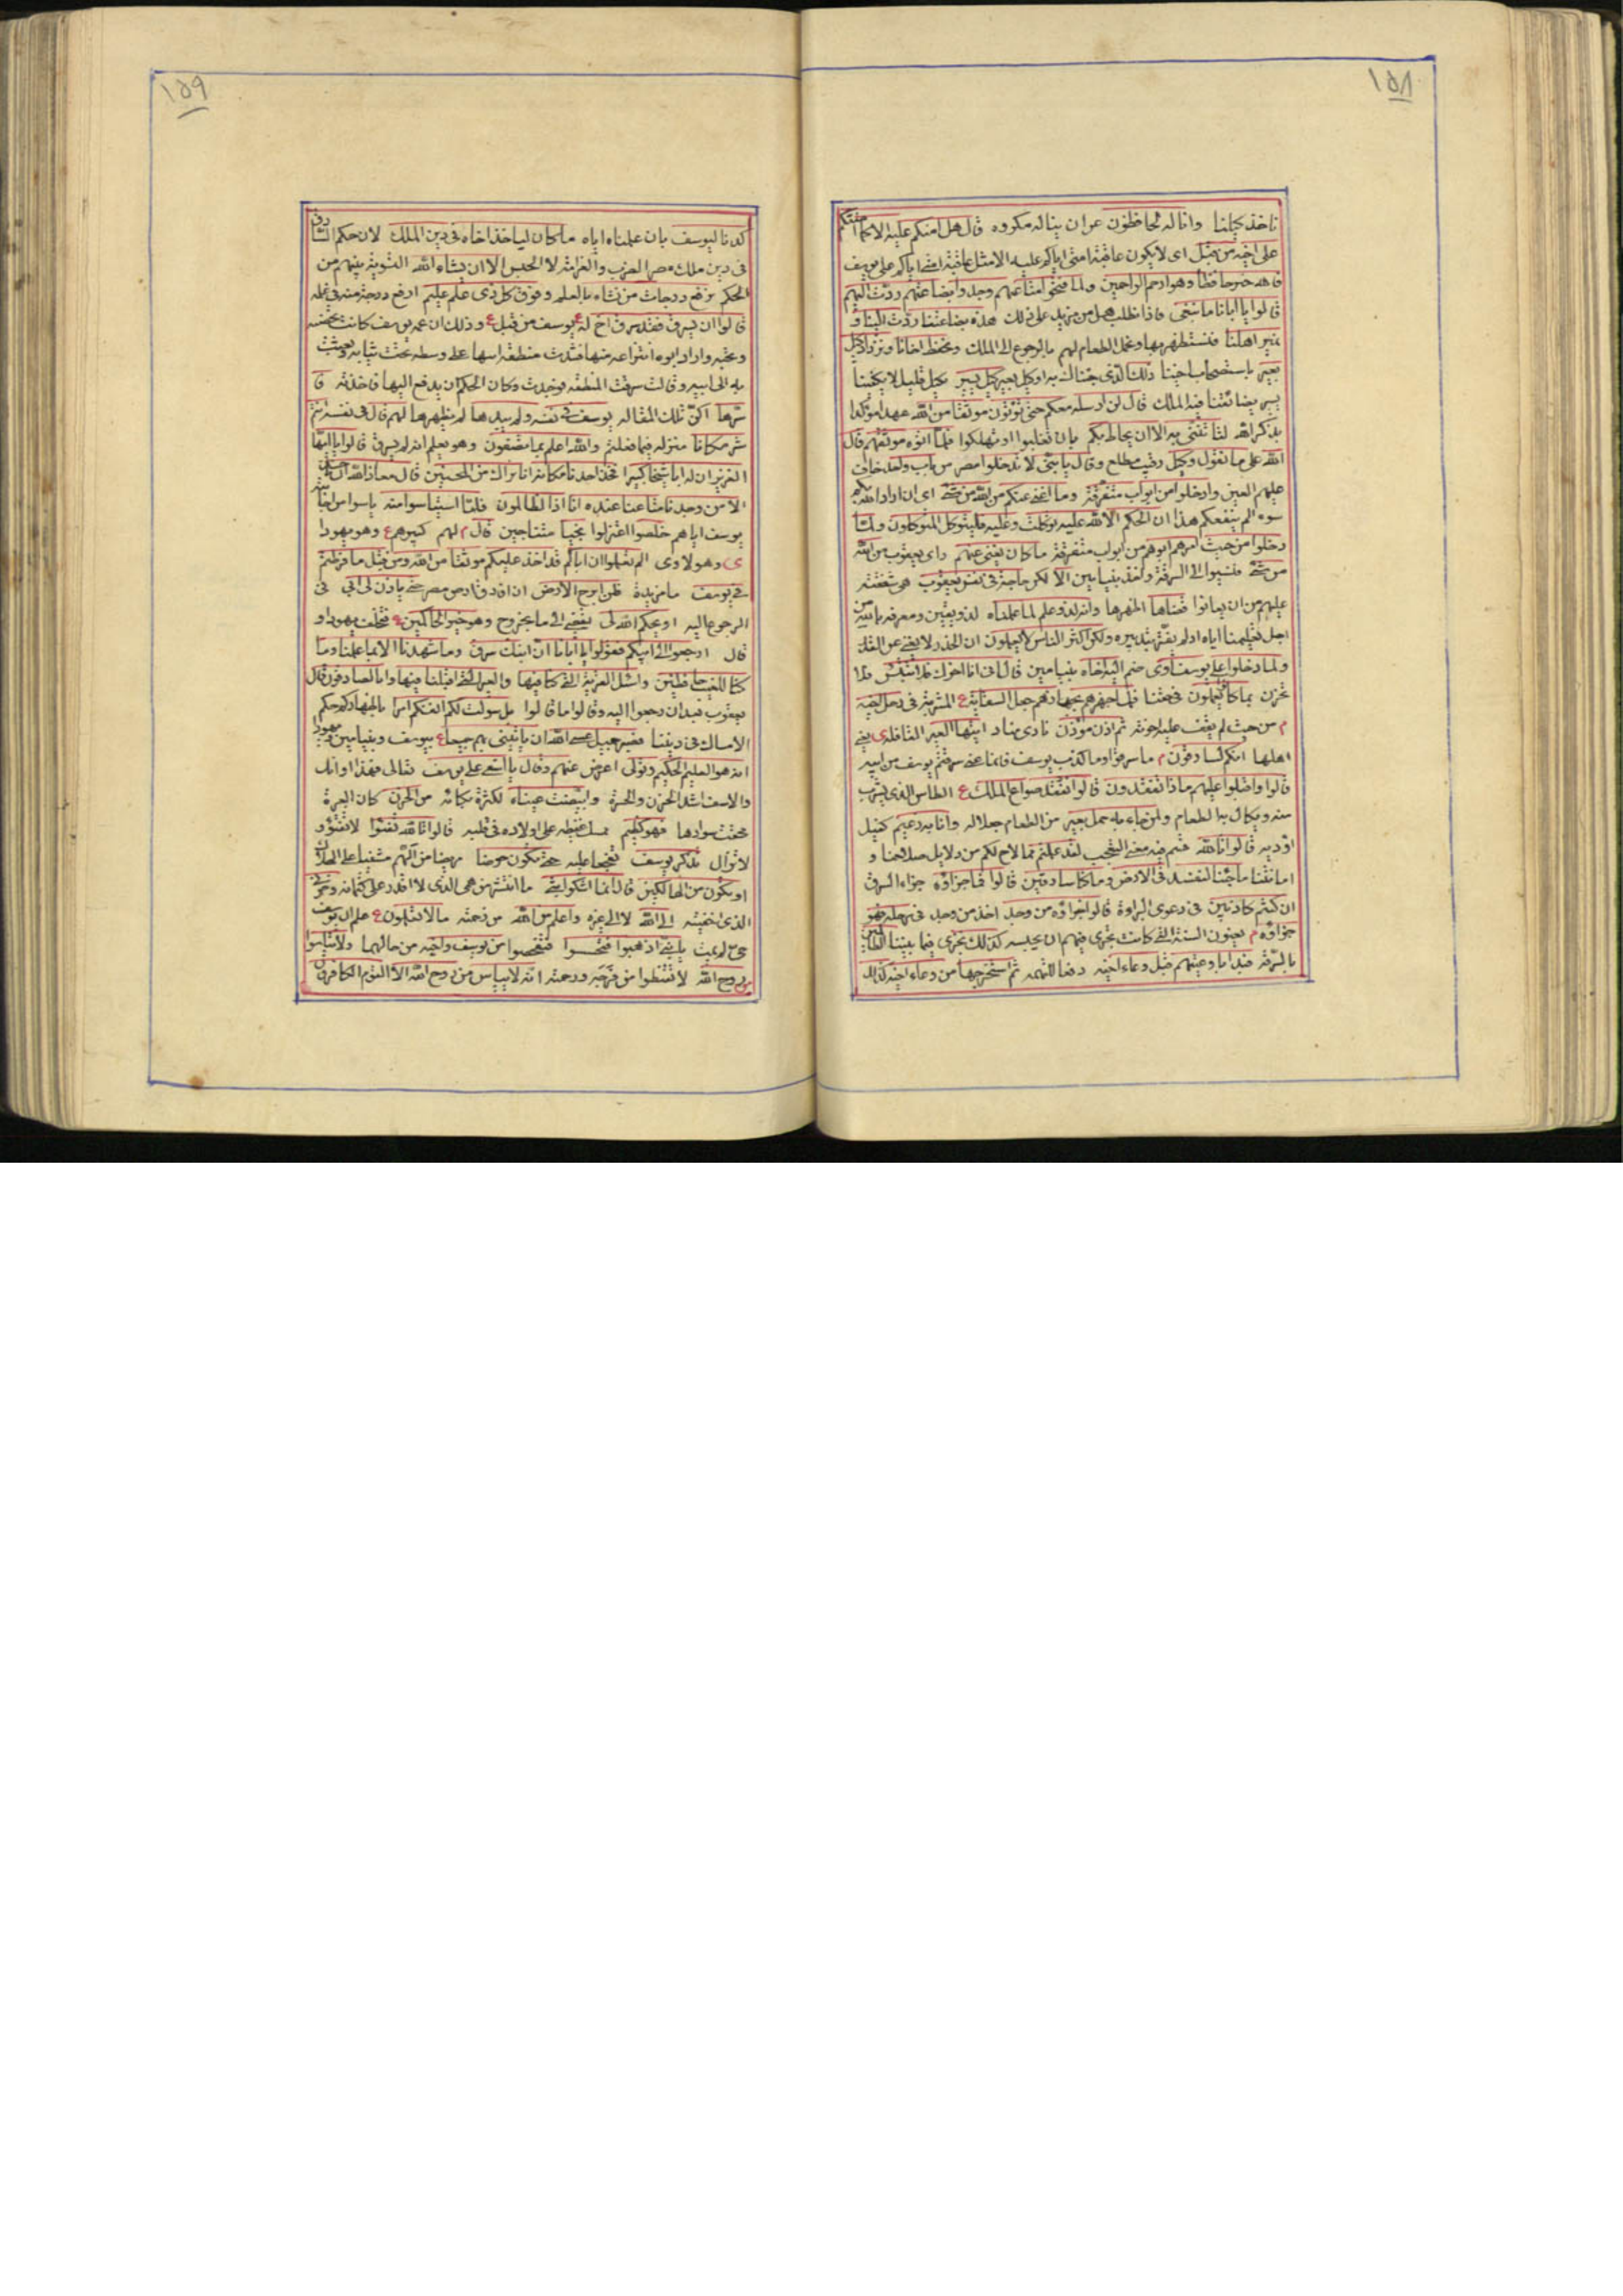 ١٥٨
ناخذ بكيلنا وانا له لحافظون عن ان يناله مكروه قال هل امنكم عليه الا كما امنتكم
على اخيه من قبل اى لا يكون عاقبة امنى اياكم عليه الا مثل عاقبة امنى اياكم على يوسف
فالله خير حافظا وهو ارحم الراحمين ولما فتحوا متاعهم وجدوا بضاعتهم ردت اليهم
قالوا يا ابانا ما نبغى فاذا نطلب هل من مزيد على ذلك هذه بضاعتنا ردت الينا و
نمير اهلنا فنستظهر بها ونحمل الطعام لهم بالرجوع الى الملك ونحفظ اخانا ونزداد كيل
بعير باستصحاب اخينا ذلك الذى جئناك به او كيل بعير كيل يسير كيل قليل لا يكفينا
يسير يضائقنا فيه الملك قال لن ارسله معكم حتى تؤتون موثقا من الله عهدا مؤكدا
بذكر الله لتأتننى به الا ان يحاط بكم بان تغلبوا او تهلكوا فلما اتوه موثقهم قال
الله على ما نقول وكيل رقيب مطلع وقال يا بنى لا تدخلوا مصر من باب واحد خاف
عليهم العين وادخلوا من ابواب متفرقة وما اغنى عنكم من الله من شىء اى ان اراد الله بكم
سوء لم ينفعكم هذا ان الحكم الا لله عليه توكلت وعليه فليتوكل المتوكلون ولما
دخلوا من حيث امرهم ابوهم من ابواب متفرقة ما كان يغنى عنهم راى يعقوب من الله
من شىء فنسبوا الى السرقة واخذ بنيامين الا لكن حاجة فى نفس يعقوب هى شفقته
عليهم من ان يعانوا قضاها اظهرها وانه لذو علم لما علمناه لذو يقين ومعرفه بالله من
اجل تعليمنا اياه اولم يغتر بتدبيره ولكن اكثر الناس لا يعلمون ان الحذر لا يغنى عن القدر
ولما دخلوا على يوسف اوى ضم اليه اخاه بنيامين قال انى انا اخوك فلا تبتئس فلا
تحزن بما كانوا يعملون فى حقنا فلما جهزهم بجهازهم جعل السقاية ع المشربة فى رحل اخيه
م من حيث لم يقف عليه اخوته ثم اذن مؤذن نادى مناد ايتها العير القافله ى يعنى
اهلها انكم لسارقون م ما سرقوا وما كذب يوسف فانما عنى سرقتم يوسف من ابيه
قالوا واقبلوا عليهم ماذا تفقدون قالوا نفقد صواع الملك ع الطاس الذى يشرب
منه ويكال به الطعام ولمن جاء به حمل بعير من الطعام جعلا له وانا به زعيم كفيل
اؤديه قالوا تالله قسم فيه معنى التعجب لقد علمتم بما لاح لكم من دلايل صدقنا و
امانتنا ما جئنا لنفسد فى الارض وما كنا سارقين قالوا فما جزاؤه جزاء السرق
ان كنتم كاذبين فى دعوى البراءة قالوا جزاؤه من وجد اخذ من وجد فى رحله فهو
جزاؤه م يعنون السنة التى كانت تجرى فيهم ان يحبسه كذلك نجزى فيما بيننا الظالمين
بالسرقة فبدا باوعيتهم قبل وعاء اخيه دفعا للتهمه ثم استخرجها من وعاء اخيه كذلك
١٥٩
كدنا ليوسف بان علمناه اياه ما كان لياخذ اخاه فى دين الملك لان حكم السارق
فى دين ملك مصر الضرب والغرامة لا الحبس الا ان يشاء الله
الحكم نرفع درجات من نشاء بالعلم وفوق كل ذى علم عليم ارفع درجة منه فى علمه
قالوا ان يسرق فقد سرق اخ له ع يوسف من قبل ع وذلك ان عمة يوسف كانت تحضنه
وتحبه واراد ابوه انتزاعه منها فشدت منطقة ابيها على وسطه تحت ثيابه وبعثت
به الى ابيه وقالت سرقت المنطقه فوجدت وكان الحكم ان يدفع اليها فاخذته فا
سرها اكن تلك المقاله يوسف فى نفسه ولم يبدها لم يظهرها لهم قال فى نفسه انتم
شر مكانا منزله فيما فعلتم والله اعلم بما تصفون وهو يعلم انه لم يسرق قالوا يا ايها
العزيز ان له ابا شيخا كبيرا فخذ احدنا مكانه انا نراك من المحسنين قال معاذ الله ان ناخذ
الا من وجدنا متاعنا عنده انا اذا لظالمون فلما استيئسوا منه ياسوا من اجابة
يوسف اياهم خلصوا اعتزلوا نجيا متناجين قال م لهم كبيرهم ع وهو يهودا
ى وهو لاوى الم تعلموا ان اباكم قد اخذ عليكم موثقا من الله ومن قبل ما فرطتم
فى يوسف ما مزيدة فلن ابرح الارض ان افارق ارض مصر حتى ياذن لى ابى فى
الرجوع اليه او يحكم الله لى يقضى لى ما بخروج وهو خير الحاكمين ع فتخلف يهودا و
قال ارجعوا الى ابيكم فقولوا يا ابانا ان ابنك سرق وما شهدنا الا بما علمنا وما
كنا للغيب حافظين واسئل القرية التى كنا فيها والعير التى اقبلنا فيها وانا لصادقون قال
يعقوب بعد ان رجعوا اليه وقالوا ما قالوا بل سولت لكم انفسكم امرا
الامساك فى ديننا فصبر جميل عسى الله ان ياتينى بهم جميعا ع بيوسف وبنيامين ويهودا
انه هو العليم الحكيم وتولى اعرض عنهم وقال يا اسفى على يوسف تعالى فهذا اوانك
والاسف اشد الحزن والحسرة وابيضت عيناه لكثرة بكائه من الحزن كان العبرة
محقت سوادها فهو كظيم ممسك غيظه على اولاده فى قلبه قالوا تالله تفتؤا لا تفتؤ و
لا تزال تذكر يوسف تفجعا عليه حتى تكون حرضا مريضا من الهم مشفيا على الهلاك
او تكون من الهالكين قال انما اشكوا بثى ما انتشر من همى الذى لا اقدر على كتمانه وحزنى
الذى اخفيته الى الله لا الى غيره واعلم من الله من رحمته ما لا تعلمون ع علم ان يوسف
حى لم يمت يا بنى اذهبوا فتحسسوا فتفحصوا من يوسف واخيه من حالهما ولا تيأسوا
من روح الله لا تقنطوا من فرجه ورحمته انه لا ييأس من روح الله الا القوم الكافرون